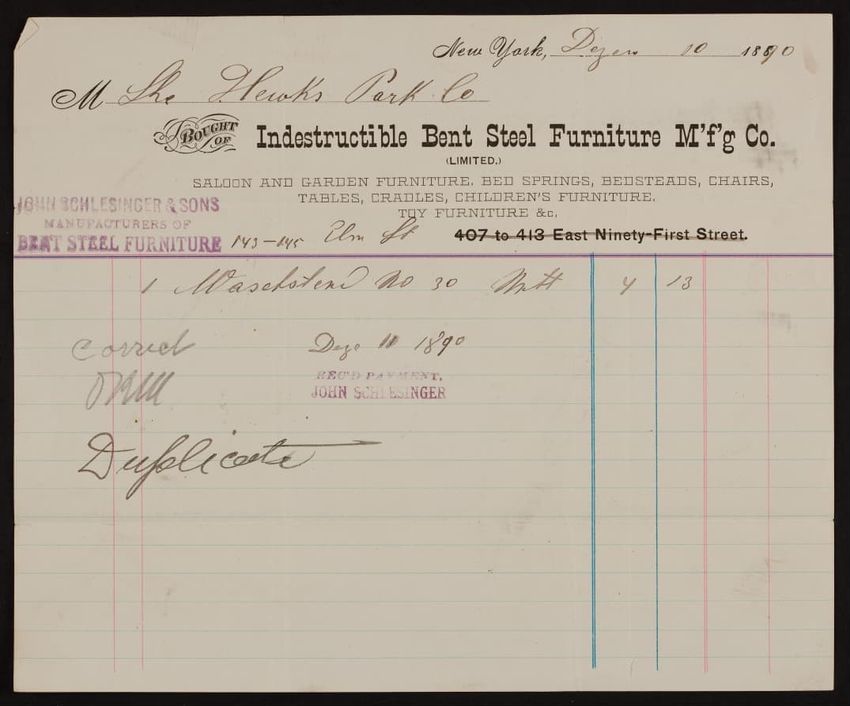 New York, Dezem 10 1890
M The Hewks Park Co
BOUGHT OF
Indestructible Bent Steel Furniture M'f'g Co.
(LIMITED.)
SALOON AND GARDEN FURNITURE, BED SPRINGS, BEDSTEADS, CHAIRS,
TABLES, CRADLES, CHILDREN'S FURNITURE,
TOY FURNITURE &c.
JOHN SCHLESINGER & SONS
MANUFACTURERS OF
BENT STEEL FURNITURE
143-145 Elm St 407 to 413 East Ninety-First Street.
1 Waschstend No 30 4 13
Correct
Deze 11 1890
REC'D PAYMENT,
JOHN SCHLESINGER
Duplicate